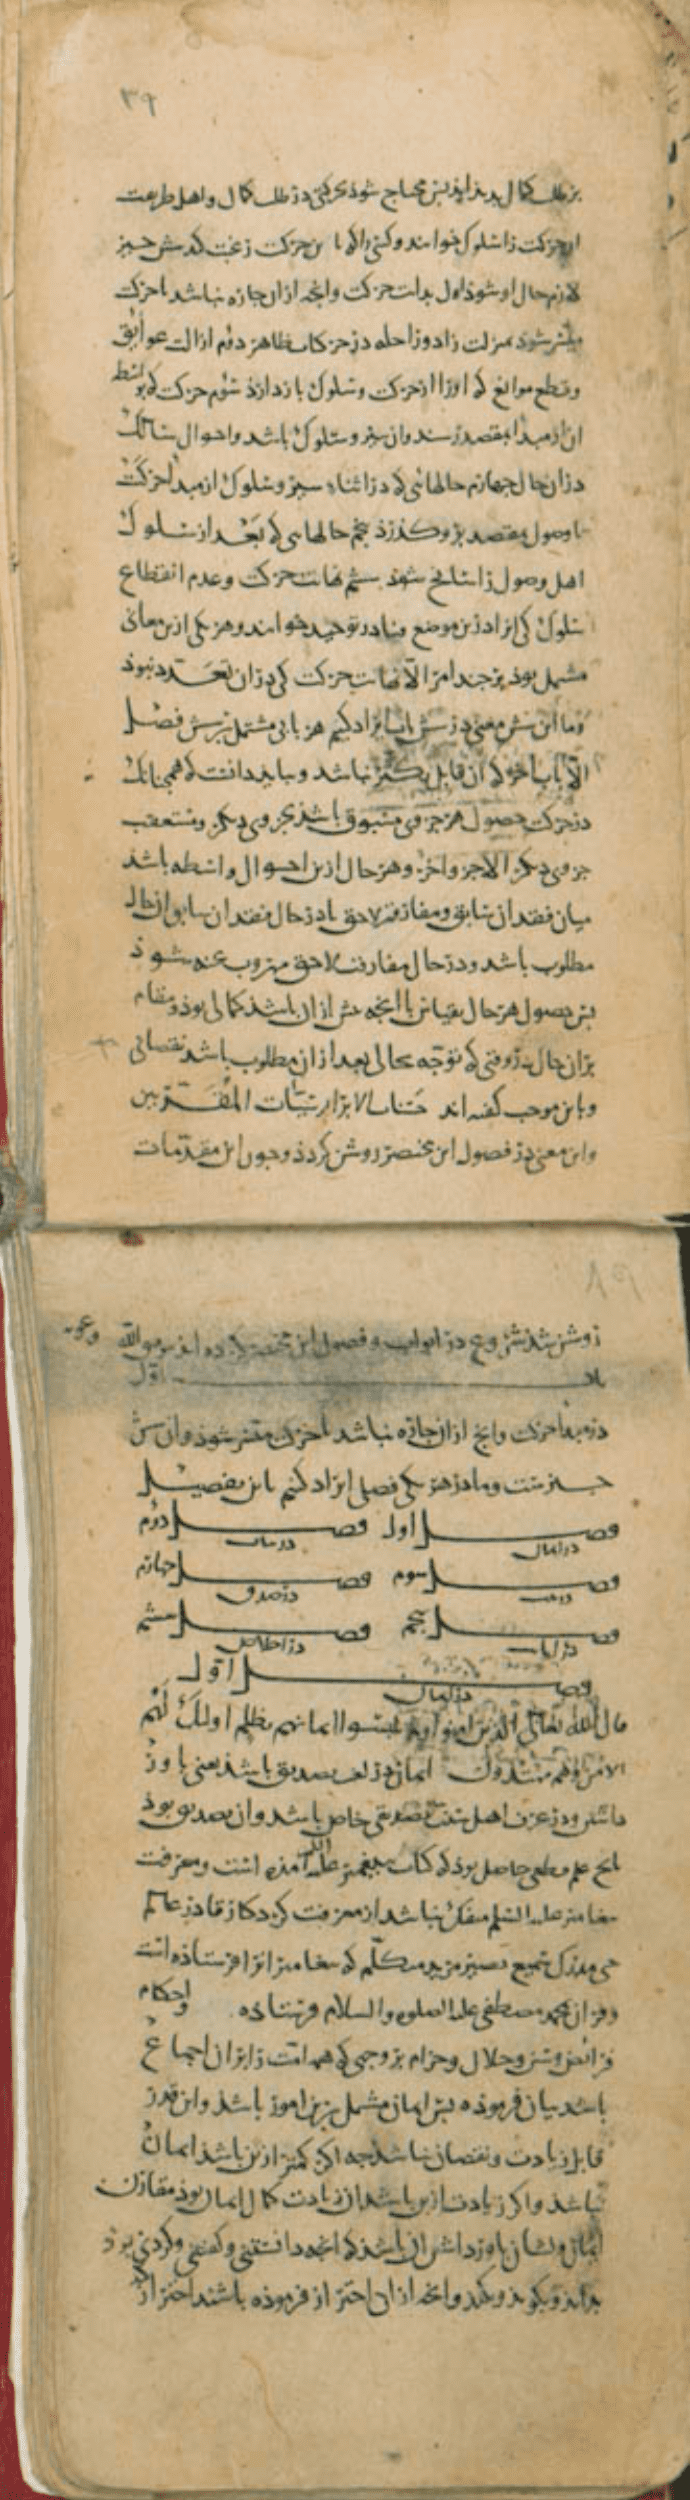 ۳۹
بر طلب کمال پدید اید پس محتاج شود بحرکتی در طلب کمال و اهل طریقت
این حرکت را سلوک خوانند و کسی را که باین حرکت رغبت کند شش چیز
لازم حال او شود اول بدایت حرکت و انچه ازان چاره نباشد تا حرکت
میسر شود بمنزلت زاد و راحله در حرکات ظاهر دوم ازالت عوایق
و قطع موانع که او را از حرکت و سلوک باز دارد سوم حرکت که بواسطه
ان از مبدا بمقصد رسند و ان سیر و سلوک باشد و احوال سالک
در ان حال چهارم حالهائی که در اثناء سیر و سلوک از مبدا حرکت
تا وصول بمقصد برو گذرد پنجم حالهایی که بعد از سلوک
اهل وصول را سانح شود ششم نهایت حرکت و عدم انقطاع
سلوک کی انرا درین موضع فنا در توحید خوانند و هر یکی ازین معانی
مشتمل بود بر چند امر الا نهایت حرکت کی در ان تعدد نبود
و ما این شش معنی در شش باب ایراد کنیم هر بابی مشتمل بر شش فصل
الا باب اخر که ان قابل تکثر نباشد و بباید دانست که همچنانک
در حرکت حصول هر جزوی مسبوق باشد بجزوی دیگر و مستعقب
جزوی دیگر الا جزو اخر و هر حال ازین احوال واسطه باشد
میان فقدان سابق و مفارقت لاحق تا در حال فقدان سابق ان حال
مطلوب باشد و در حال مفارقت لاحق مهروب عنه شود
پس حصول هر حال بقیاس با انچه پیش ازان باشد کمالی بود و مقام
بران حال در وقتی که توجه بحالی بعد ازان مطلوب باشد نقصانی
و باین موجب گفته اند حسنات الابرار سیئات المقربین
و این معنی در فصول این مختصر روشن کردد و چون این مقدمات
روشن شد شروع در ابواب و فصول این مختصر کرده اید بتوفیق الله وعونه
باب اول
در مبدا حرکت و انچ ازان چاره نباشد تا حرکت میسر شود و ان شش
چیزست و ما در هر یکی فصلی ایراد کنیم باین تفصیل
فصل اول در ایمان فصل دوم در ثبات
فصل سوم در نیت فصل چهارم در صدق
فصل پنجم در انابت فصل ششم در اخلاص
فصل اول در ایمان
قال الله تعالی الذین امنوا ولم یلبسوا ایمانهم بظلم اولئک لهم
الامن وهم مهتدون ایمان در لغت تصدیق باشد یعنی باور
داشتن و در عرف اهل تحقیق تصدیقی خاص باشد و ان تصدیق بود
بانچ علم قطعی حاصل بود که کتاب پیغمبر علیه السلم امده است و معرفت
پیغامبر علیه السلم منفک نباشد از معرفت کردکار قادر عالم
حی مدرک سمیع بصیر مرید متکلم که پیغامبر انرا فرستاده است
و قران بمحمد مصطفی علیه الصلوه والسلام فرستاده و احکام
فرائض و سنن و حلال و حرام بر وجهی که همه امت را بران اجماع
باشد بیان فرموده پس ایمان مشتمل برین امور باشد و این قدر
قابل زیادت و نقصان نباشد چه اکر کمتر ازین باشد ایمان
نباشد و اکر زیادت ازین باشد ان زیادت کمال ایمان بود مقارن
ایمان و نشان باور داشتن ان باشد که انچه دانستنی و کفتنی و کردنی بود
بداند و بکوید و بکند و انچه ازان احتراز فرموده باشند احتراز کند